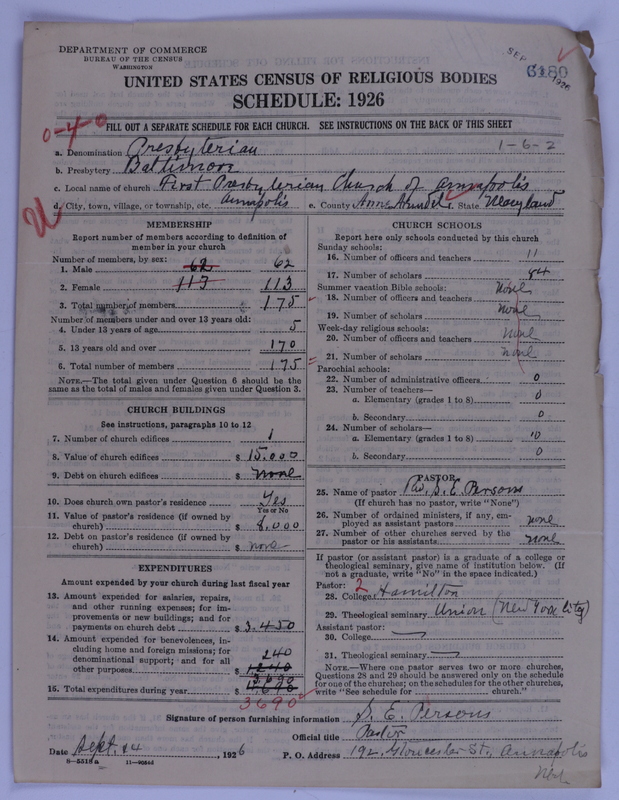 DEPARTMENT OF COMMERCE
BUREAU OF THE CENSUS
WASHINGTON
SEP 1926
6180
UNITED STATES CENSUS OF RELIGIOUS BODIES
SCHEDULE: 1926
0-4-0
FILL OUT A SEPARATE SCHEDULE FOR EACH CHURCH. SEE INSTRUCTIONS ON THE BACK OF THIS SHEET
a. Denomination Presbyterian 1-6-2
b. Presbytery Baltimore
c. Local name of church First Presbyterian Church of Annapolis
d. City, town, village, or township, etc. Annapolis e. County Anne Arundel f. State Maryland
U
MEMBERSHIP
Report number of members according to definition of
member in your church
Number of members, by sex:
1. Male 62 62
2. Female 113 113
3. Total number of members 175
Number of members under and over 13 years old:
4. Under 13 years of age 5
5. 13 years old and over 170
6. Total number of members 175
NOTE.—The total given under Question 6 should be
same as the total of males and females given under Question 3.
CHURCH BUILDINGS
See instructions, paragraphs 10 to 12
7. Number of church edifices 1
8. Value of church edifices $ 15.000
9. Debt on church edifices $ none
10. Does church own pastor's residence Yes
Yes or No
11. Value of pastor's residence (if owned by
church) $ 8.000
12. Debt on pastor's residence (if owned by
church) $ none
EXPENDITURES
Amount expended by your church during last fiscal year
13. Amount expended for salaries, repairs,
and other running expenses; for im-
provements or new buildings; and for
payments on church debt $ 3.450
14. Amount expended for benevolences, in-
cluding home and foreign missions; for
denominational support; and for all
other purposes $ 240
1240
15. Total expenditures during year $
3690
CHURCH SCHOOLS
Report here only schools conducted by this church
Sunday schools:
16. Number of officers and teachers 11
17. Number of scholars 84
Summer vacation Bible schools:
18. Number of officers and teachers None
19. Number of scholars None
Week-day religious schools:
20. Number of officers and teachers None
21. Number of scholars None
Parochial schools:
22. Number of administrative officers 0
23. Number of teachers—
a. Elementary (grades 1 to 8) 0
b. Secondary 0
24. Number of scholars—
a. Elementary (grades 1 to 8) 0
b. Secondary 0
PASTOR
25. Name of pastor Rev. S. E. Persons
(If church has no pastor, write "None")
26. Number of ordained ministers, if any, em-
ployed as assistant pastors none
27. Number of other churches served by the
pastor or his assistants none
If pastor (or assistant pastor) is a graduate of a college or
theological seminary, give name of institution below. (If
not a graduate, write "No" in the space indicated.)
Pastor: 2
28. College Hamilton
29. Theological seminary Union (New York City)
Assistant pastor:
30. College
31. Theological seminary
NOTE.—Where one pastor serves two or more churches,
Questions 28 and 29 should be answered only on the schedule
for one of the churches; on the schedules for the other churches,
write "See schedule for church."
Signature of person furnishing information S. E. Persons
Official title Pastor
Date Sept. 24, 1926 P. O. Address 192 Gloucester St., Annapolis
Md.
8-5518a 11-9056d